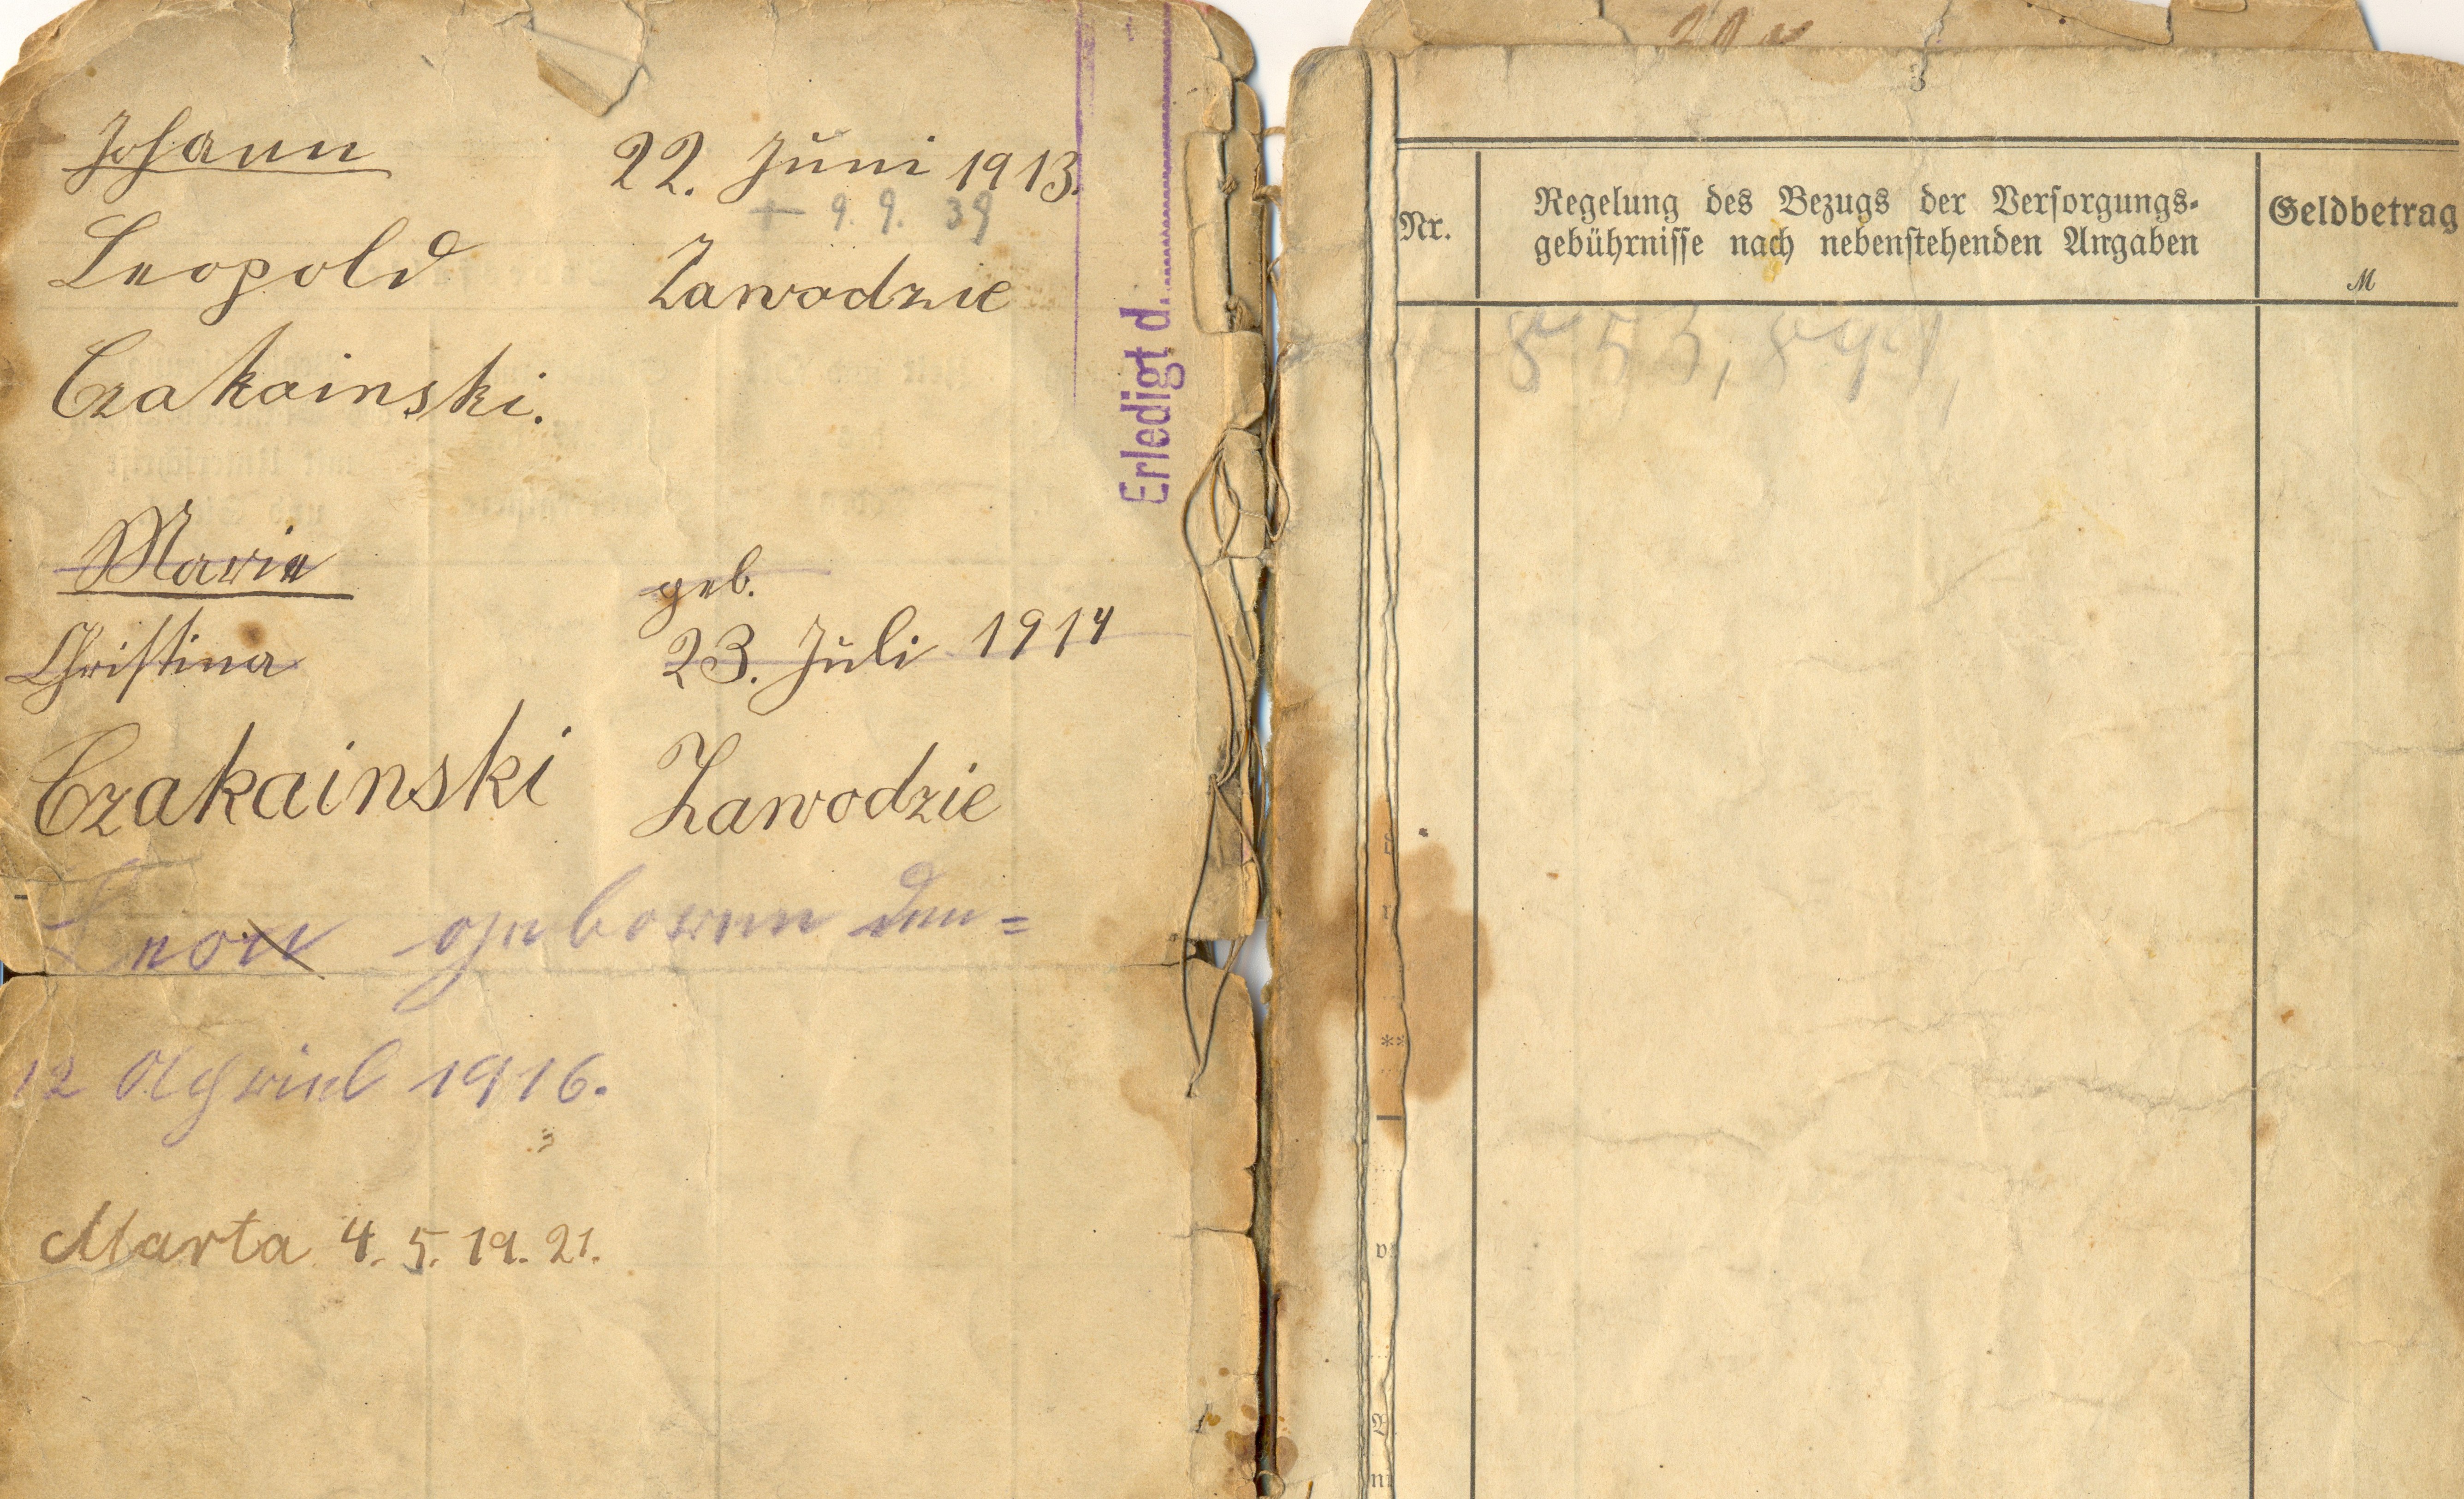 Johann 22. Juni 1913.
+ 9. 9. 39
Leopold Zawodzie
Czakainski.
Marie geb.
Christina 23. Juli 1914
Czakainski Zawodzie
Leon geboren den=
12 April 1916.
Marta 4. 5. 19. 21.
Erledigt d.
3
Nr.
Regelung des Bezugs der Versorgungs-
gebührnisse nach nebenstehenden Angaben
Geldbetrag
M